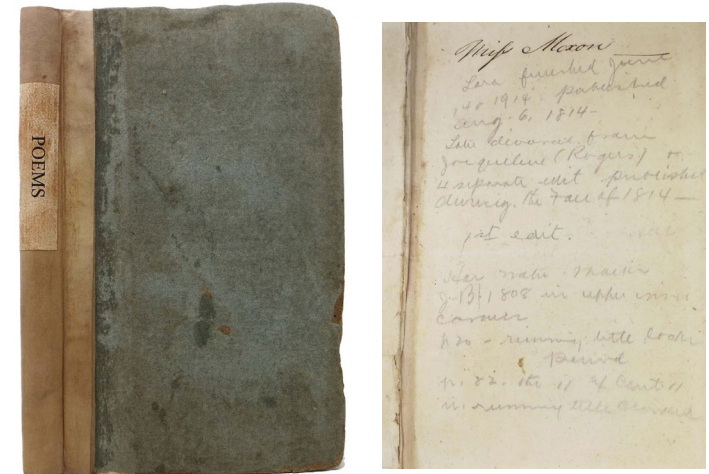 POEMS
Miss Moxon
Lara finished June
14 1914. published
Aug. 6, 1814 —
Lara divorced from
Jacqueline (Rogers) &
4 separate edit published
during the Fall of 1814 —
1st edit.
Has water mark
1808 in upper inner
corner
p. 20 - running title lacks
period
p. 22. the 11 of Cant 11
in running title